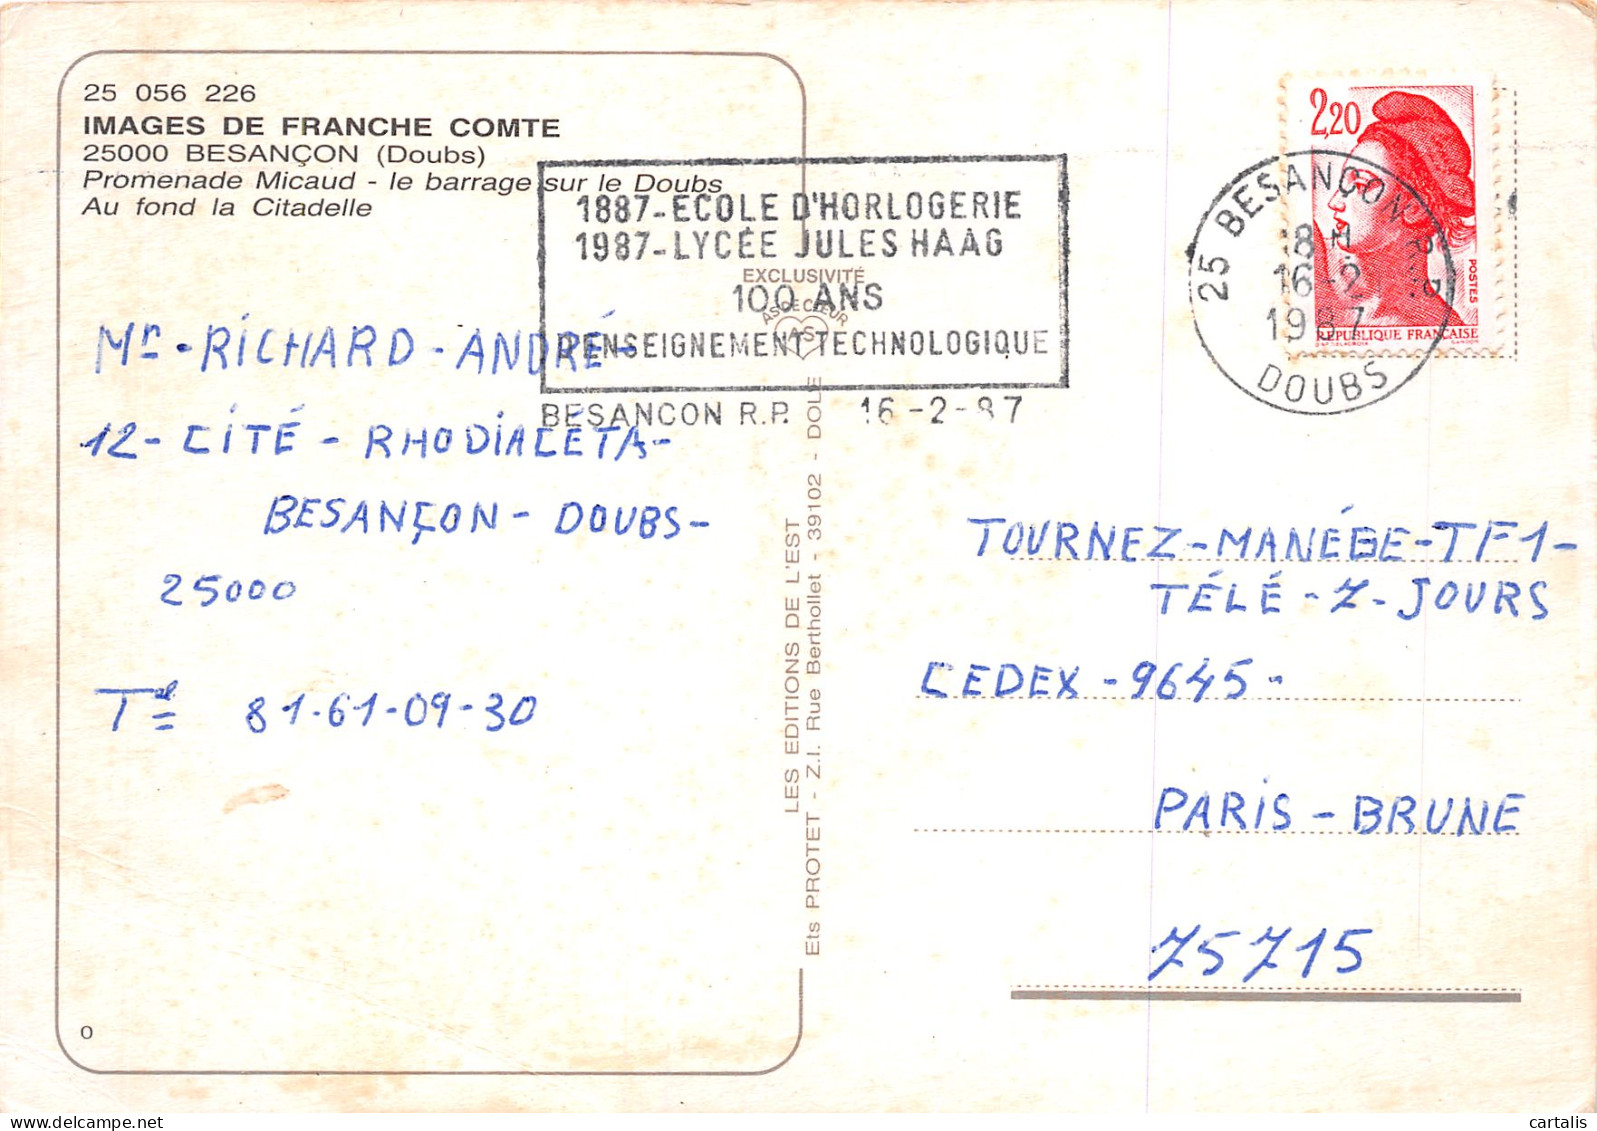 25 056 226
IMAGES DE FRANCHE COMTE
25000 BESANÇON (Doubs)
Promenade Micaud - le barrage sur le Doubs
Au fond la Citadelle
1887-ECOLE D'HORLOGERIE
1987-LYCÉE JULES HAAG
100 ANS
D'ENSEIGNEMENT TECHNOLOGIQUE
BESANCON R.P. 16-2-87
EXCLUSIVITÉ
AS DE CŒUR
AS
2,20
POSTES
REPUBLIQUE FRANÇAISE
25 BESANÇON R.P.
18H
16-2
1987
DOUBS
Mr - RICHARD - ANDRÉ -
12 - CITÉ - RHODIACÉTA -
BESANÇON - DOUBS -
25000
Tel 81-61-09-30
LES EDITIONS DE L'EST
Ets PROTET - Z.I. Rue Berthollet - 39102 - DOLE
TOURNEZ-MANÉGE-TF1-
TÉLÉ-7-JOURS
CEDEX - 9645 -
PARIS - BRUNE
75715
O
cartalis